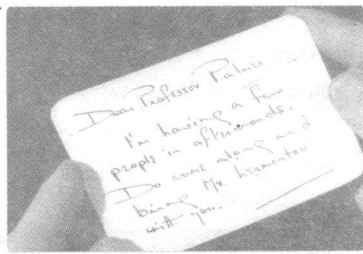 Dear Professor Palmer
I'm having a few
people in afterwards.
Do come along and
bring Mr. Lermontov
with you.